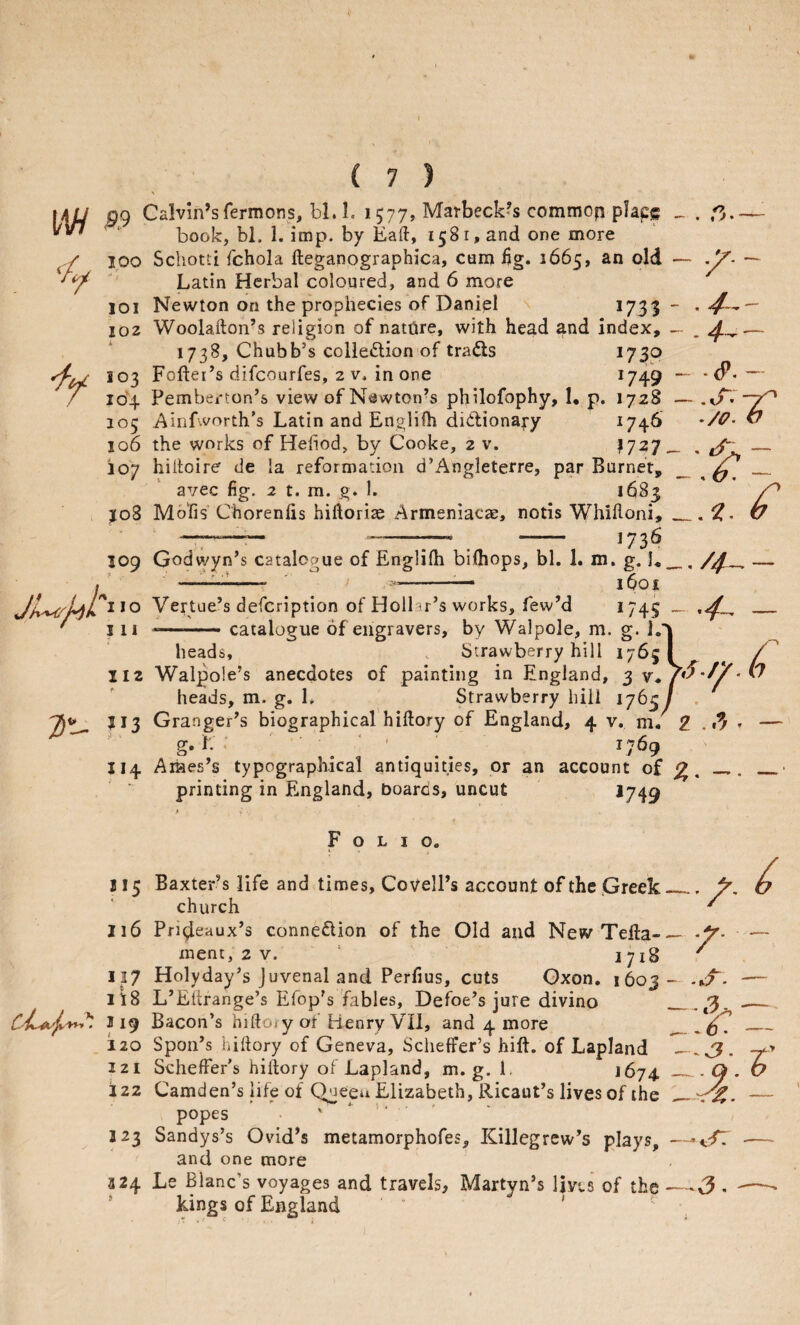 ( 7 )
WH 99 Calvin’s ſermons, bl. l. 1577, Marbeck’s common place - . 3. —
book, bl. l. imp. by Eaſt, 1581, and one more
100 Schotti ſchola ſteganographica, cum fig. 1665, an old — . 7. —
Latin Herbal coloured, and 6 more
101 Newton on the prophecies of Daniel 1733 - . 4 —
102 Woolaſton’s religion of nature, with head and index, - . 4 —
1738, Chubb’s collection of tracts 1730
103 Foſter’s diſcourſes, 2 v. in one 1749 — . 8. —
104 Pemberton’s view of Newton’s philoſophy, l. p. 1728 — . 5.
105 Ainſworth’s Latin and Engliſh dictionary 1746 . 10. 6
106 the works of Heſiod, by Cooke, 2 v. 1727 — . 5 —
107 hiſtoire de la reformation d’Angleterre, par Burnet, — . 6. —
avec fig. 2 t. m. g. l. 1683
108 Moſis Chorenſis hiſtoriæ Armeniacæ, notis Whiſtoni, — . 2. 6
——— ——— —— 1736
109 Godwyn’s catalogue of Engliſh biſhops, bl. l. m. g. l. — . 14 —
——— ——— 1601
110 Vertue’s deſcription of Hollar’s works, ſew’d 1745 — . 4 —
111 ——— catalogue of engravers, by Walpole, m. g. l.
heads, Strawberry hill 1765
112 Walpole’s anecdotes of painting in England, 3 v. 6
heads, m. g. l. Strawberry hill 1765
113 Granger’s biographical hiſtory of England, 4 v. m. 2 . 3 . —
g. l. 1769
114 Ames’s typographical antiquities, or an account of 2. — . —
printing in England, boards, uncut 1749
FOLIO.
115 Baxter’s life and times, Covell’s account of the Greek — . 7. 6
church
116 Prideaux’s connection of the Old and New Teſta- — . 7. —
ment, 2 v. 1718
117 Holyday’s Juvenal and Perſius, cuts Oxon. 1603 - . 5. —
118 L’Eſtrange’s Eſop’s fables, Defoe’s jure divino — . 3 —
119 Bacon’s hiſtory of Henry VII, and 4 more — . 6. —
120 Spon’s hiſtory of Geneva, Scheffer’s hiſt. of Lapland — . 3.
121 Scheffer’s hiſtory of Lapland, m. g. l. 1674 — . 9. 6
122 Camden’s life of Queen Elizabeth, Ricaut’s lives of the — . 2. —
popes
123 Sandys’s Ovid’s metamorphoſes, Killegrew’s plays, — . 5. —
and one more
124 Le Blanc’s voyages and travels, Martyn’s lives of the — . 3. —
kings of England